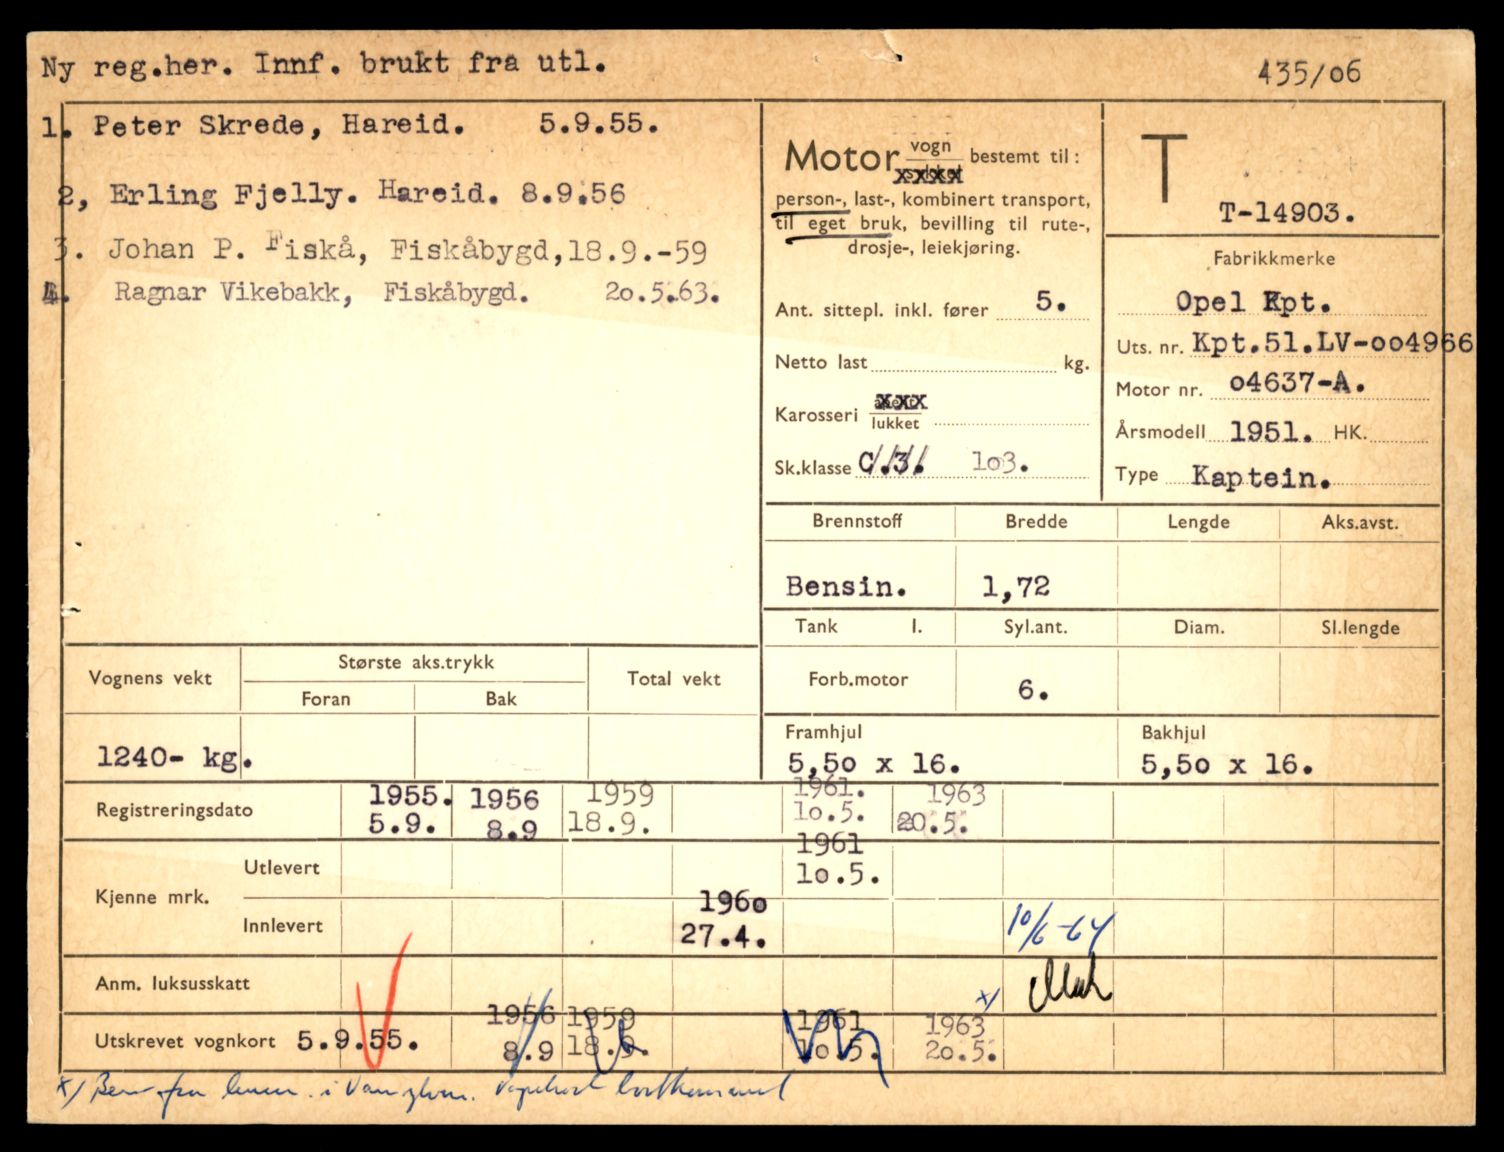 Ny reg.her. Innf. brukt fra utl.
435/06
1. Peter Skrede, Hareid. 5.9.55.
2, Erling Fjelly. Hareid. 8.9.56
3. Johan P. Fiskå, Fiskåbygd,18.9.-59
4. Ragnar Vikebakk, Fiskåbygd. 20.5.63.
Motor vogn bestemt til:
person-, last-, kombinert transport,
til eget bruk, bevilling til rute-,
drosje-, leiekjøring.
Ant. sittepl. inkl. fører 5.
Netto last kg.
Karosseri xxx
lukket
Sk.klasse C.3. 103.
T
T-14903.
Fabrikkmerke
Opel Kpt.
Uts. nr. Kpt.51.LV-004966
Motor nr. 04637-A.
Årsmodell 1951. HK.
Type Kaptein.
Brennstoff Bredde Lengde Aks.avst.
Bensin. 1,72
Tank l. Syl.ant. Diam. Sl.lengde
Forb.motor 6.
Framhjul Bakhjul
5,50 x 16. 5,50 x 16.
Vognens vekt Største aks.trykk Total vekt
Foran Bak
1240- kg.
Registreringsdato 1955. 1956 1959 1961. 1963
5.9. 8.9 18.9. 10.5. 20.5.
Kjenne mrk. Utlevert 1961
10.5.
Innlevert 1960
27.4. 10/6-64
Anm. luksusskatt
x/
Utskrevet vognkort 5.9.55. 1956 1959 1961 1963
8.9 18.9. 10.5. 20.5.
x/ fra i